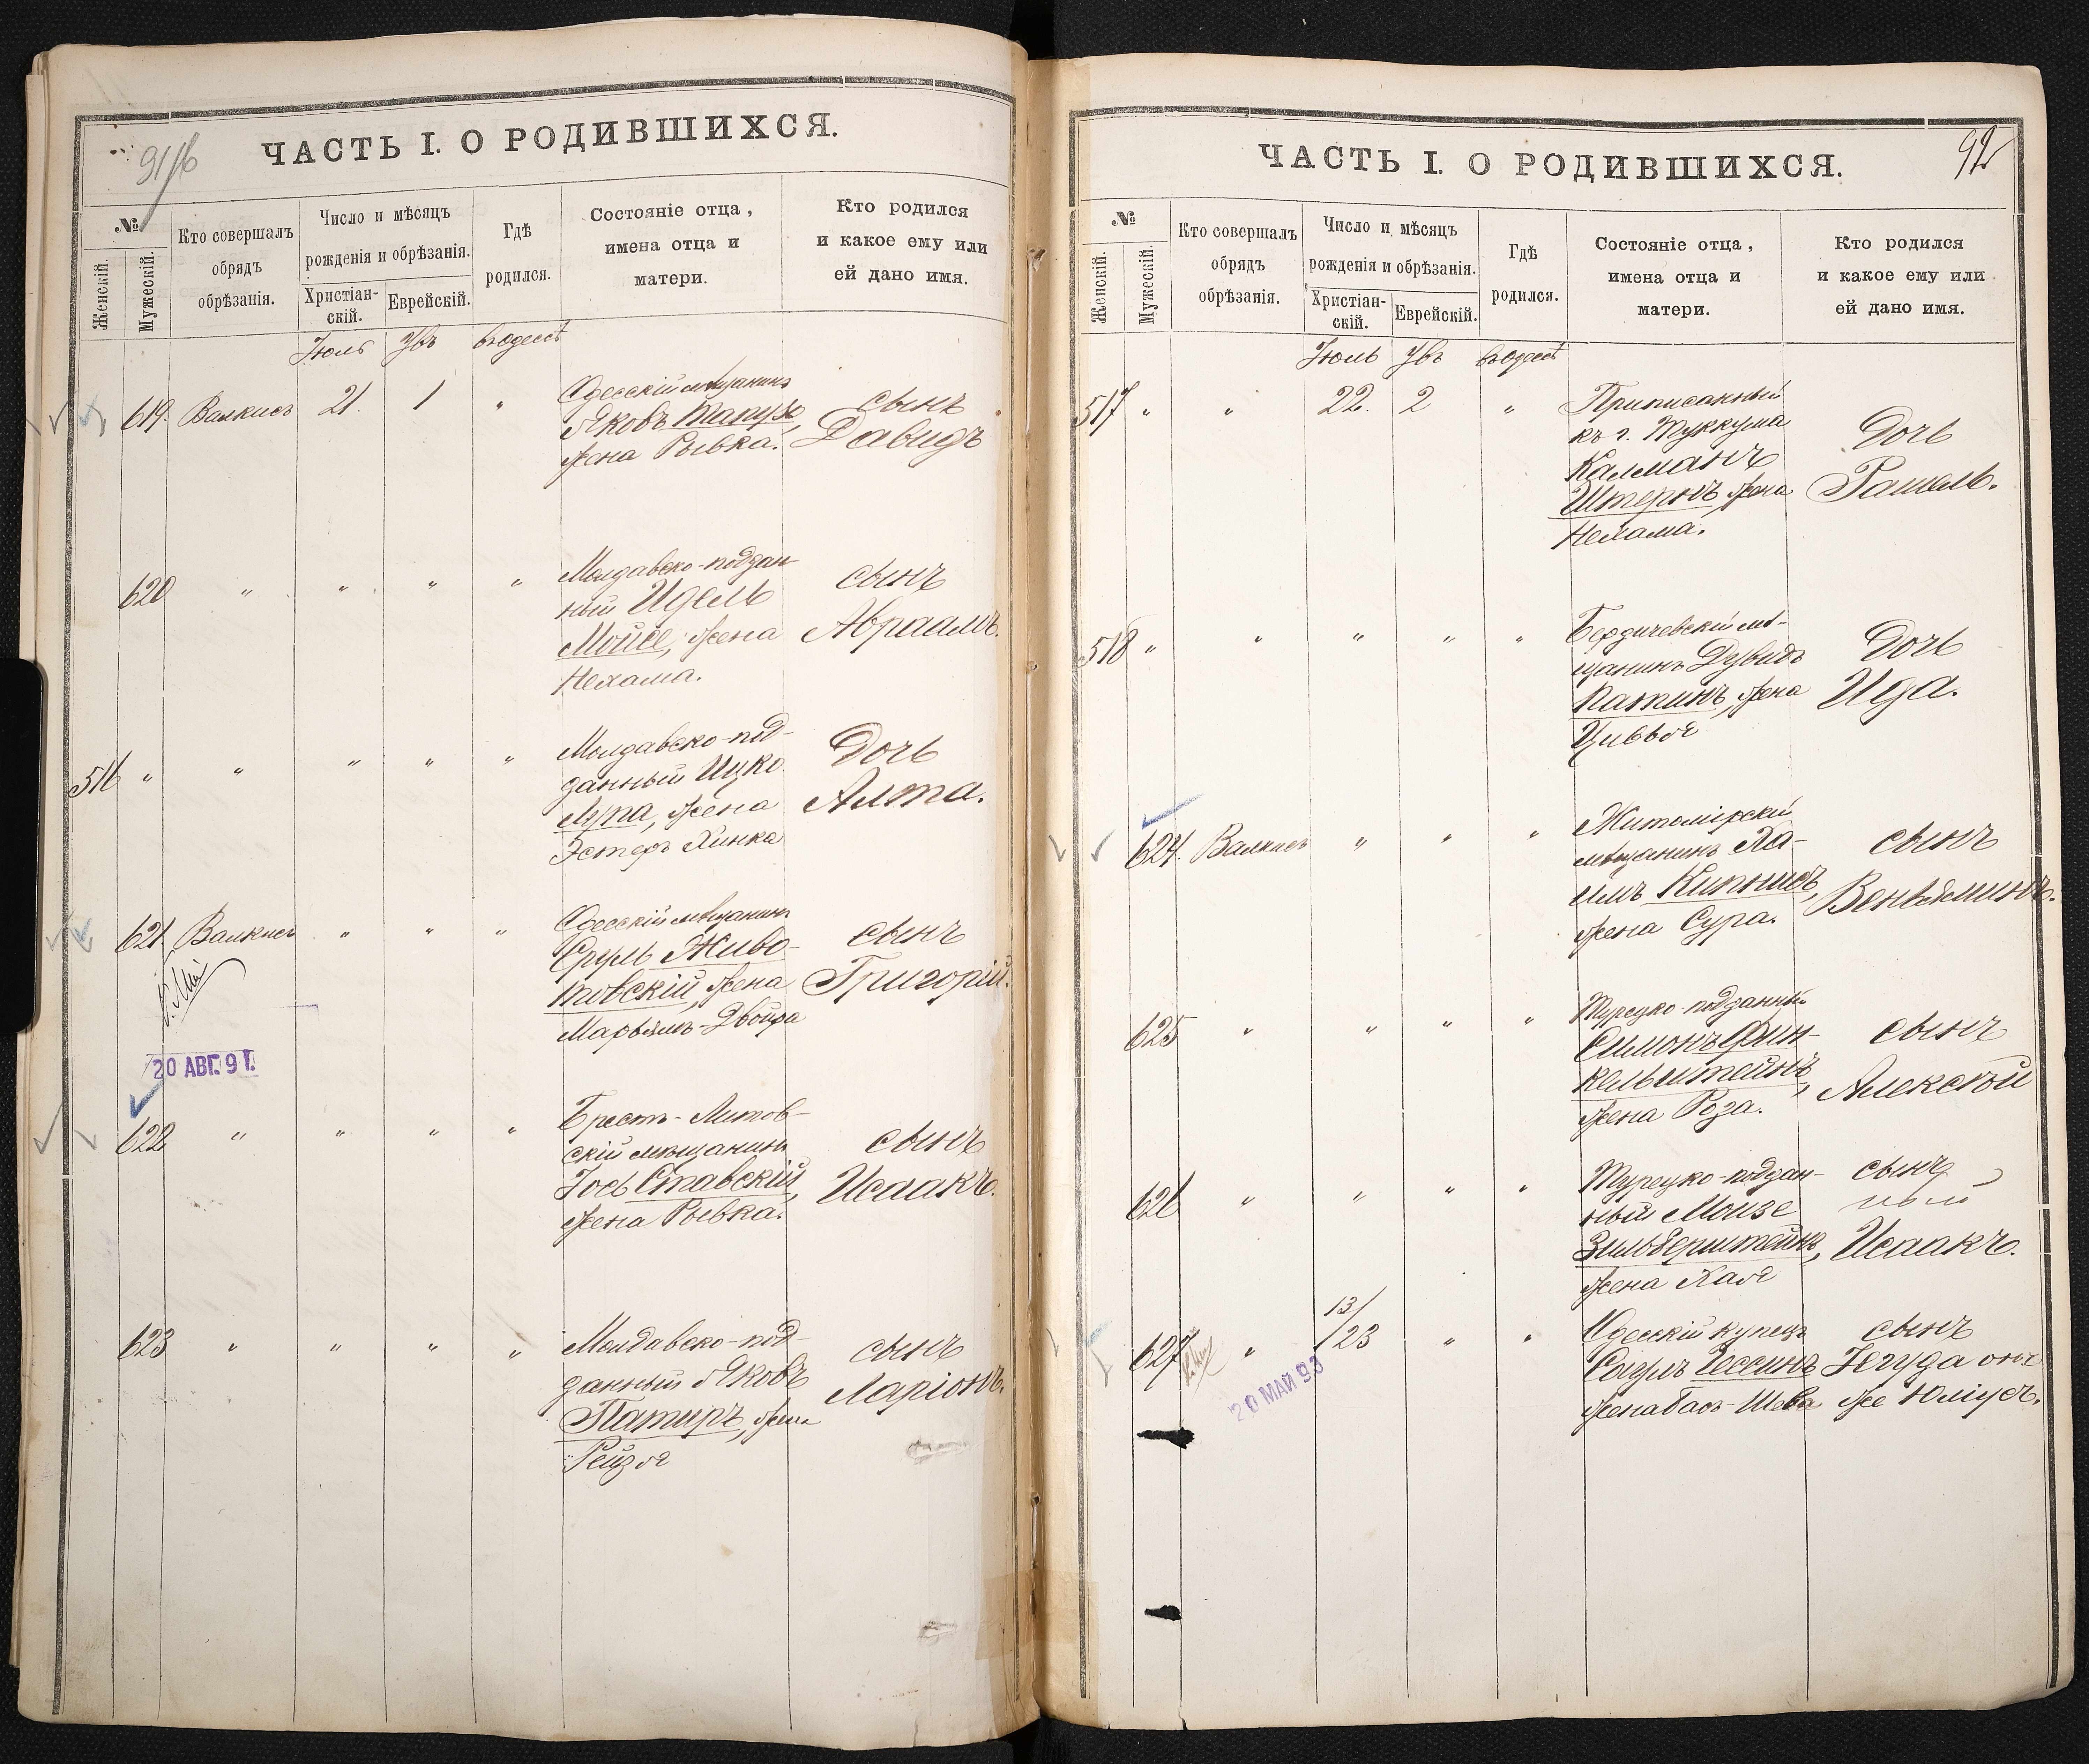 91/б
ЧАСТЬ I. О РОДИВШИХСЯ.
№
Женскій.
Мужескій.
Кто совершалъ
обрядъ
обрѣзанія.
Число и мѣсяцъ
рожденія и обрѣзанія.
Христіан-
скій.
Еврейскій.
Гдѣ
родился.
Состояніе отца,
имена отца и
матери.
Кто родился
и какое ему или
ей дано имя.
Іюль Увъ въ Одессѣ
619. Валкисъ 21. 1 "
Одесскій мѣщанинъ
Яковъ
жена Рывка.
сынъ
Давидъ
620 " " " "
Молдавско-поддан-
ный Идель
Мойсе, жена
Нехама.
сынъ
Абраамъ.
516 " " " " "
Молдавско-под-
данный Ицко
Лупа, жена
Эстеръ Хинка
Дочь
Алта.
621. Валкисъ " " "
Одесскій мѣщанинъ
Сруль Живо-
товскій, жена
Марьямъ-Двойра
сынъ
Григорій.
20 АВГ. 9
622 " " " "
Брестъ-Литов-
скій мѣщанинъ
Іось Ставскій,
жена Рывка.
сынъ
Исаакъ.
623 " " " "
Молдавско-под-
данный Яковъ
Патиръ, жена
Рейзя
сынъ
Ларіонъ.
92
ЧАСТЬ I. О РОДИВШИХСЯ.
№
Женскій.
Мужескій.
Кто совершалъ
обрядъ
обрѣзанія.
Число и мѣсяцъ
рожденія и обрѣзанія.
Христіан-
скій.
Еврейскій.
Гдѣ
родился.
Состояніе отца,
имена отца и
матери.
Кто родился
и какое ему или
ей дано имя.
Іюль Увъ въ Одессѣ
517 " " 22. 2 "
Приписанный
къ г. Туккума
Калманъ
Штернъ, жена
Нехама.
Дочь
Рашель.
518 " " " " "
Бердичевскій мѣ-
щанинъ Дувидъ
Патинъ, жена
Цивья
Дочь
Ида.
624. Валкисъ " " "
Житомірскій
мѣщанинъ Ха-
имъ Кипнисъ,
жена Сура.
сынъ
Веньяминъ.
625 " " " "
Турецко-подданный
Симонъ Фин-
кельштейнъ,
жена Роза.
сынъ
Алексѣй
626 " " " "
Турецко-поддан-
ный Моизе
Зильберштейнъ,
жена Хая
сынъ
Исаакъ.
627 " 13/23 " "
Одесскій купецъ
Гессинъ
жена Бася-Шева
сынъ
Іегуда онъ
же Юліусъ.
20 МАЙ 93